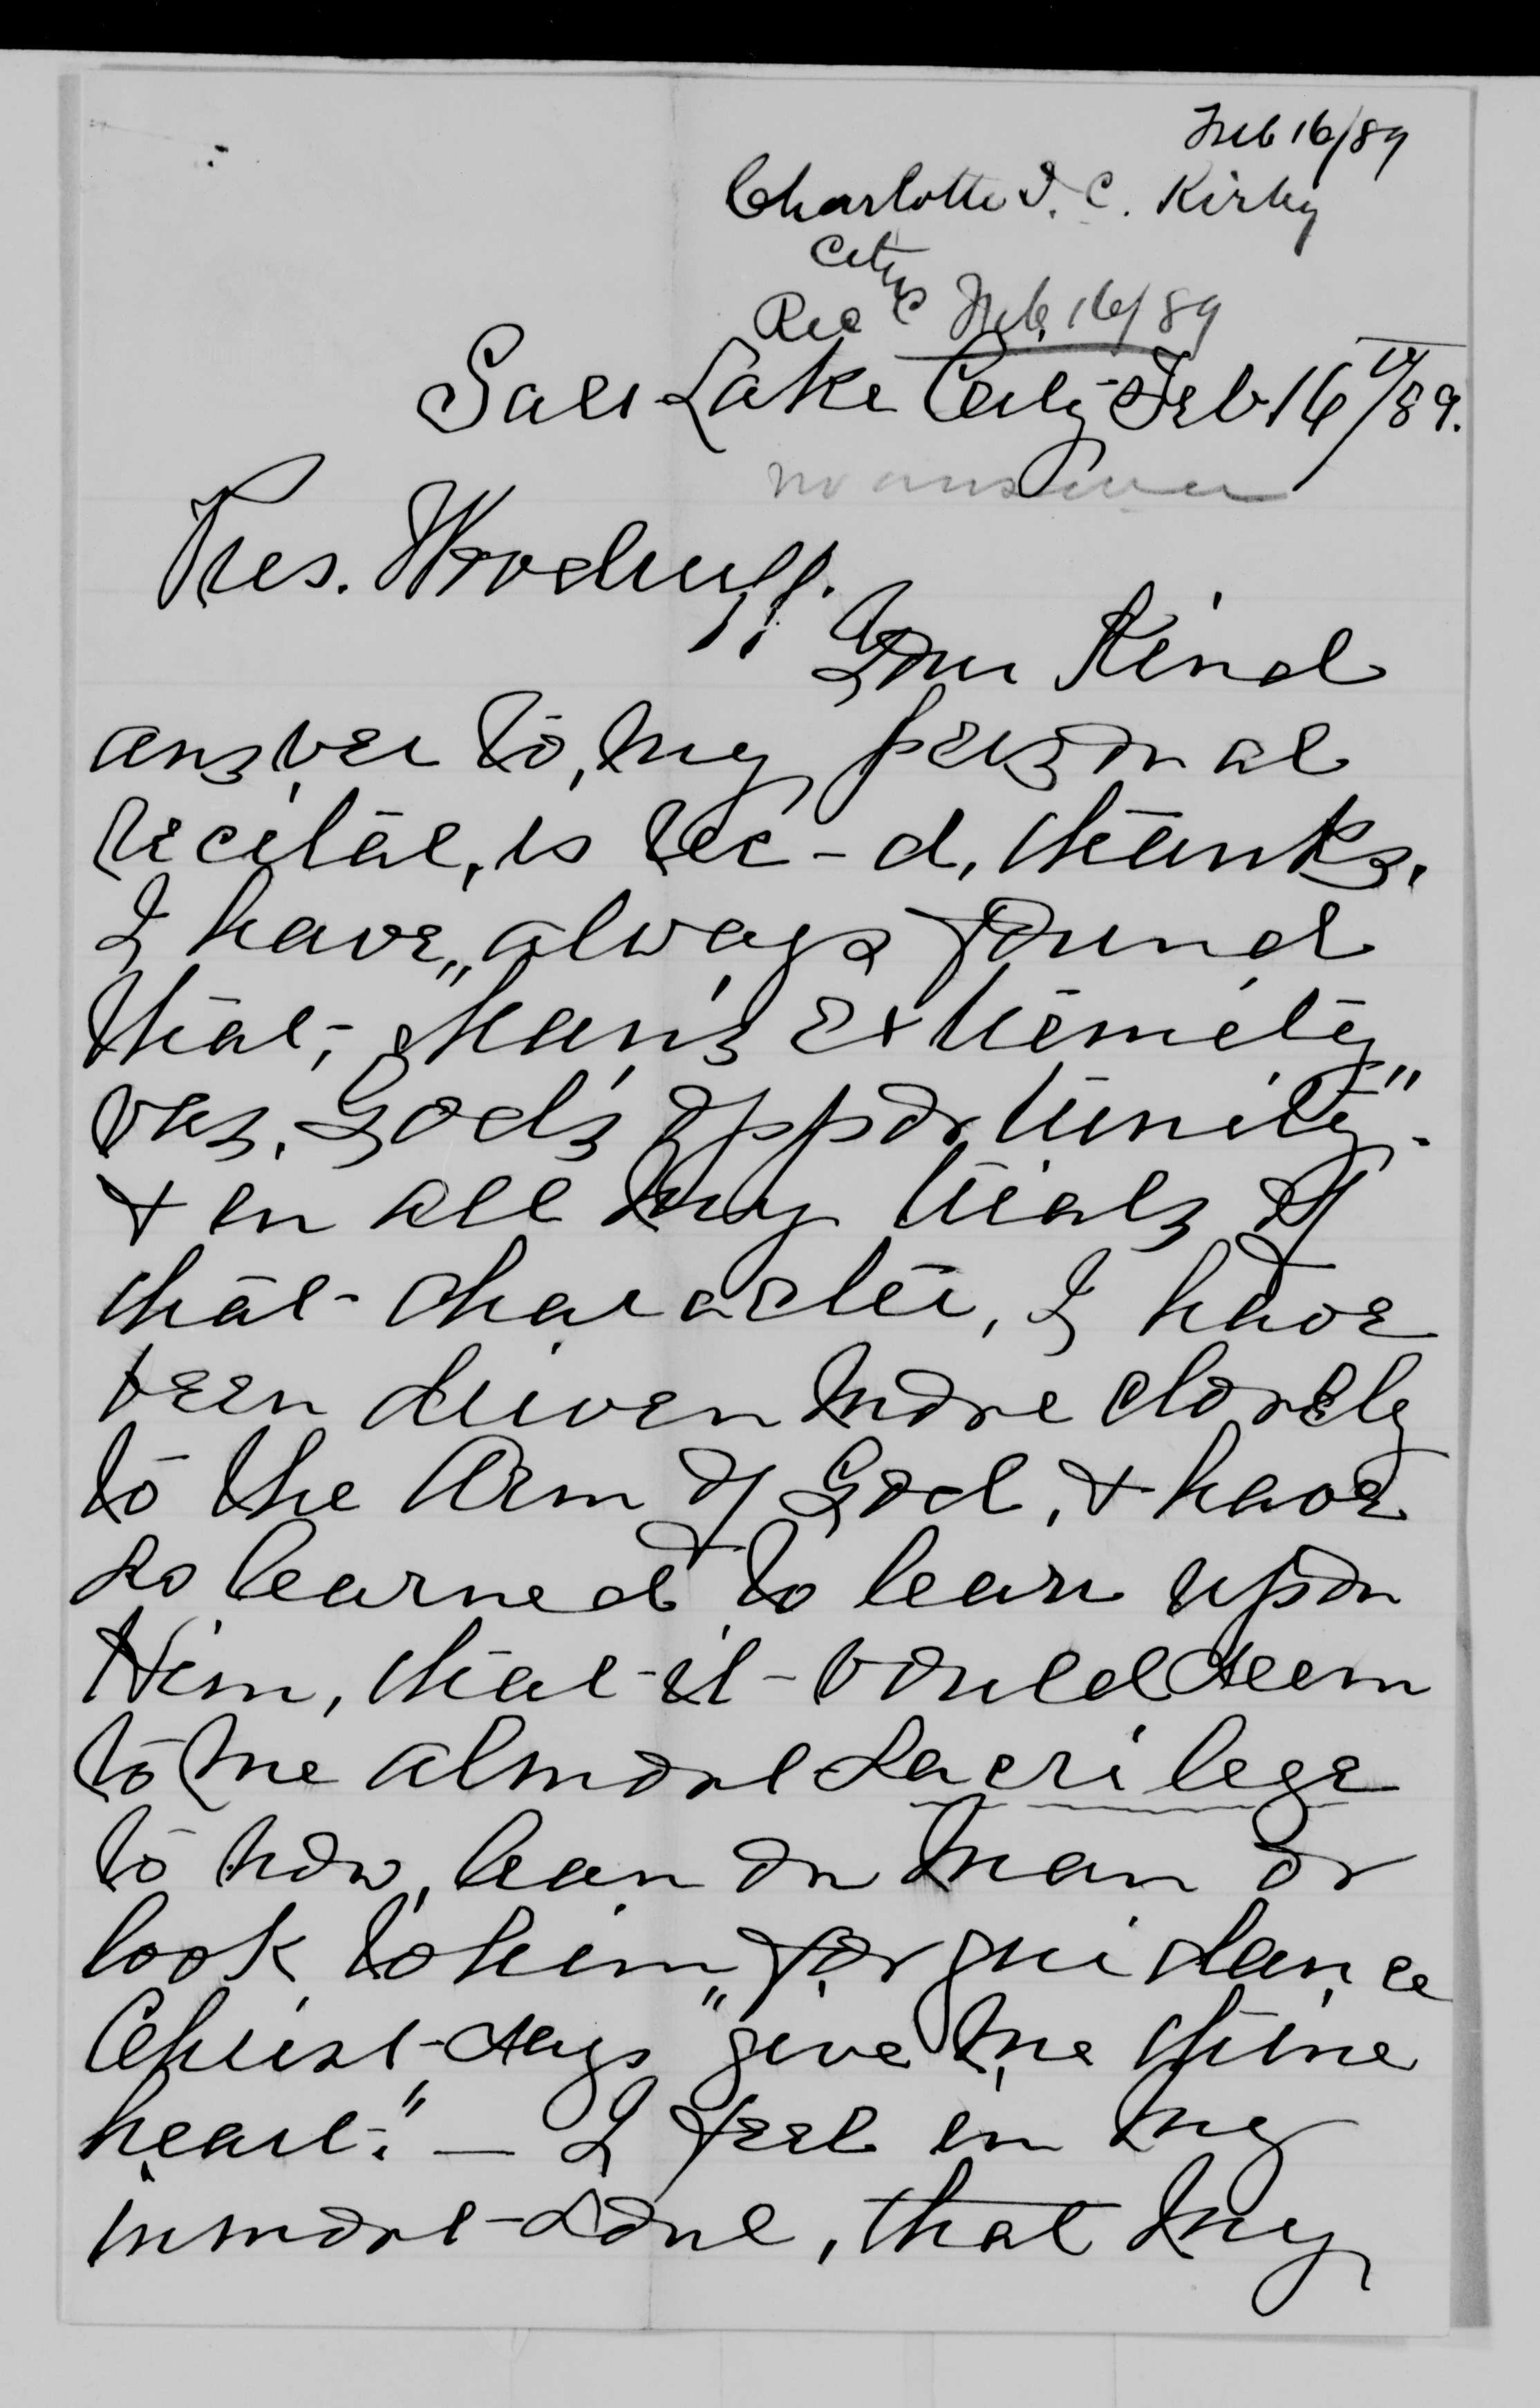 Feb 16/89
Charlotte I. C. Kirby
City
Recd Feb. 16/89
Salt Lake City Feb 16th/89.
no answer
Pres. Woodruff.
Your Kind
answer to, my personal
recital, is rec-d, thanks,
I have, always found
that, "Man's extremity
was, God's opportunity"
& in all my trials of
that character, I have
been driven more closely
to the Arm of God, & have
so learned to lean upon
Him, that it would seem
to me almost sacrilege
to now, lean on man or
look to him, for guidance
Christ says "give me thine
heart." — I feel in my
inmost soul, that my